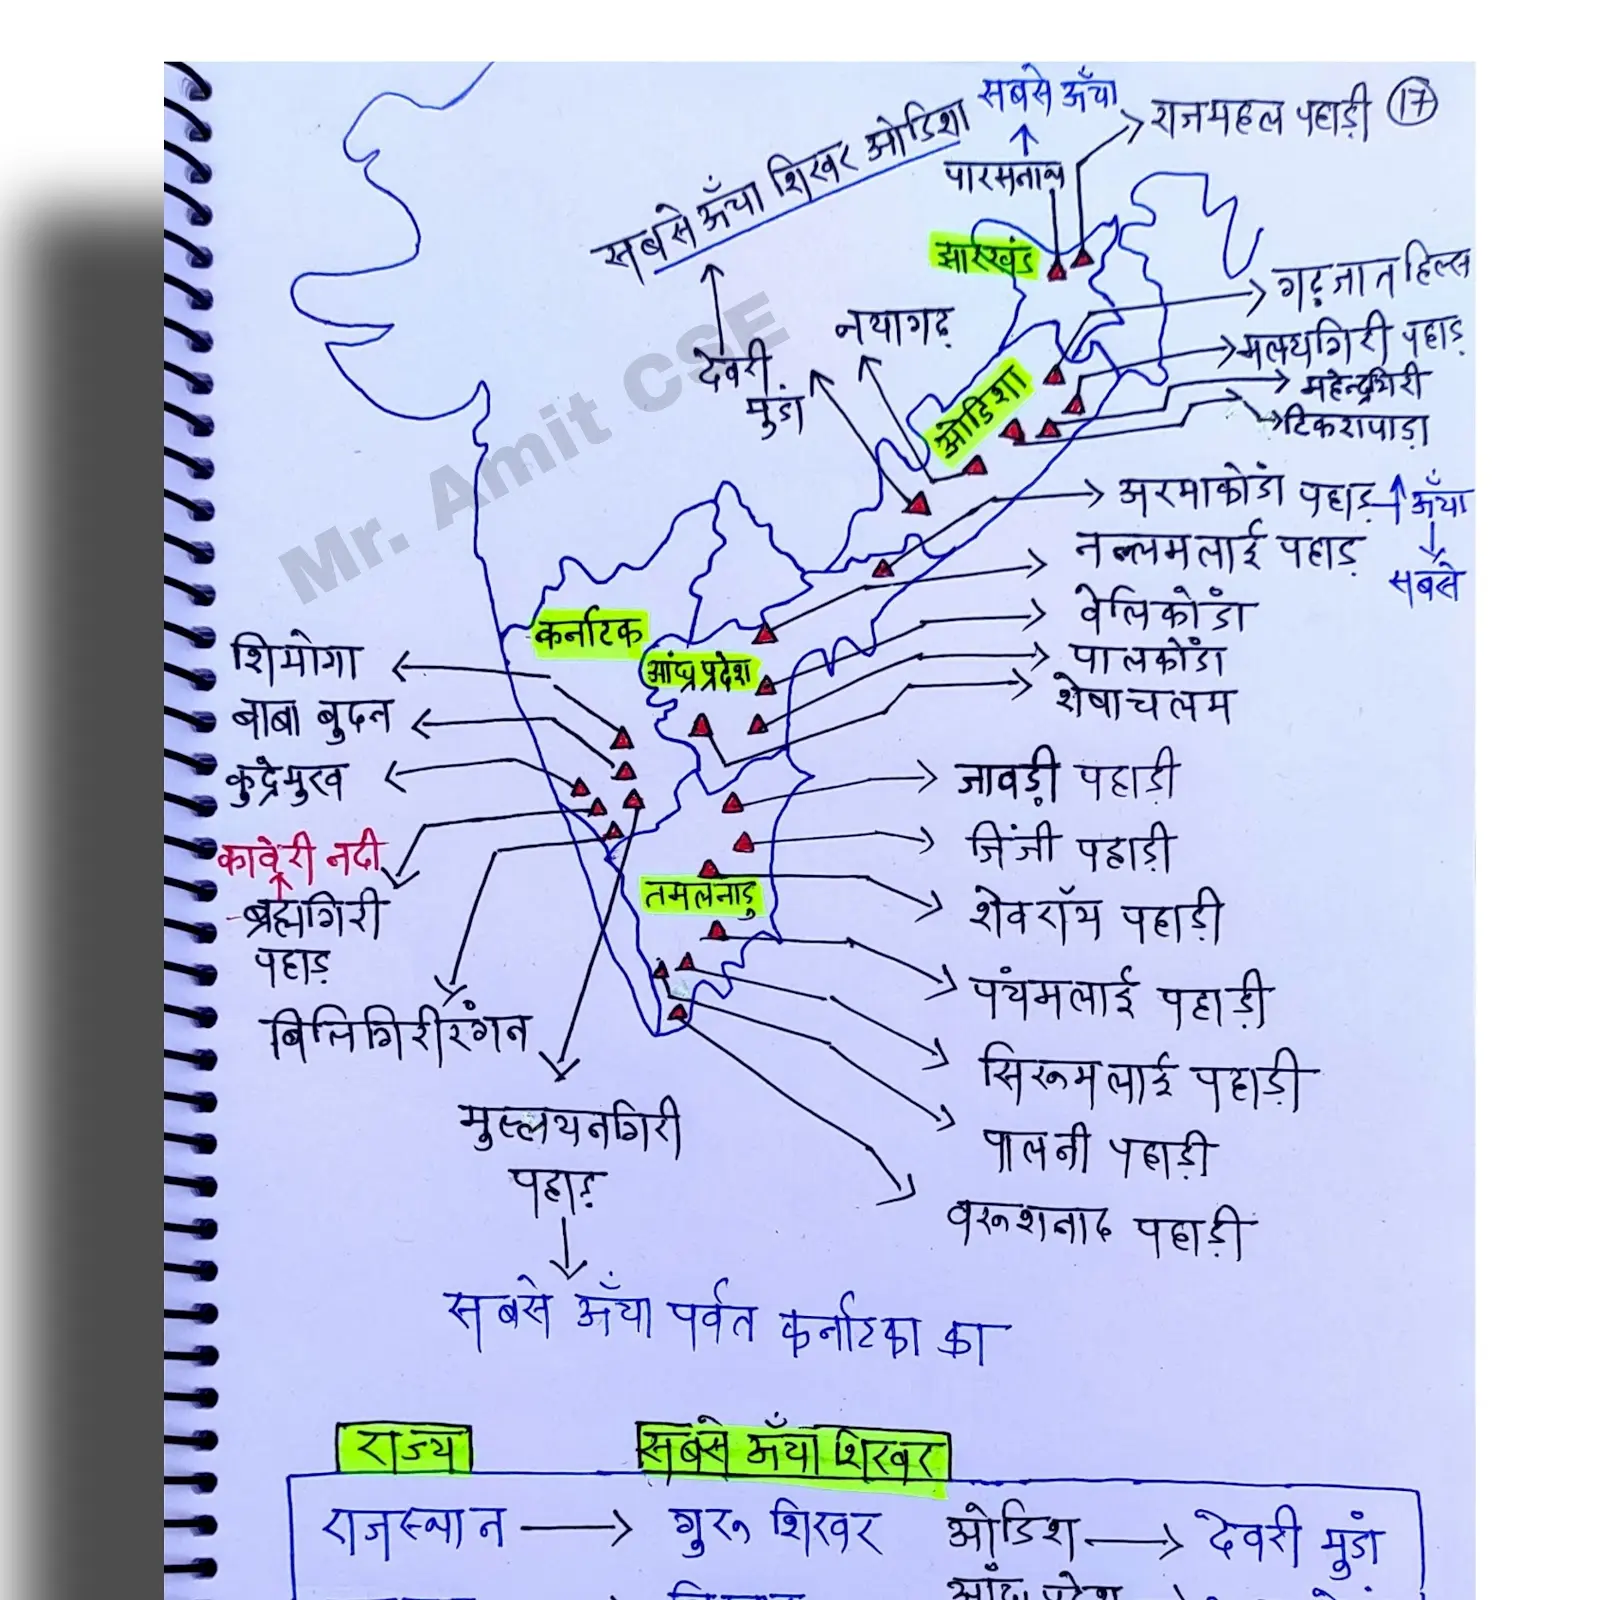 सबसे ऊँचा
राजमहल पहाड़ी 17
पारसनाथ
सबसे ऊँचा शिखर ओडिशा
झारखंड
गढ़जात हिल्स
नयागढ़
मलयगिरी पहाड़
देवरी
मुंडा
महेन्द्रगिरी
ओडिशा
टिकरापाड़ा
अरमाकोंडा पहाड़ ऊँचा
सबसे
नल्लमलाई पहाड़
वेलिकोंडा
पालकोंडा
शेषाचलम
कर्नाटक
आंध्र प्रदेश
शिमोगा
बाबा बुदन
कुद्रेमुख
कावेरी नदी
ब्रह्मगिरी
पहाड़
बिलिगिरीरंगन
जावड़ी पहाड़ी
जिंजी पहाड़ी
शेवरॉय पहाड़ी
तमलनाडु
पंचमलाई पहाड़ी
सिरूमलाई पहाड़ी
पालनी पहाड़ी
वरूशनाद पहाड़ी
मुल्लयनगिरी
पहाड़
सबसे ऊँचा पर्वत कर्नाटका का
Mr. Amit CSE
राज्य सबसे ऊँचा शिखर
राजस्थान गुरू शिखर ओडिश देवरी मुंडा